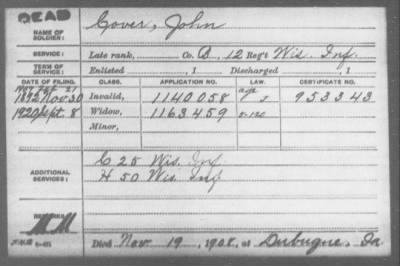 DEAD
NAME OF SOLDIER: Cover, John
SERVICE: Late rank, Co. B, 12 Reg't Wis. Inf.
TERM OF SERVICE: Enlisted , 1 Discharged , 1
DATE OF FILING. CLASS. APPLICATION NO. LAW. CERTIFICATE NO.
1892 Nov 30 Invalid, 1140058 age 953343
1920 Sept. 8 Widow, 1163459
Minor,
ADDITIONAL SERVICES: C 25 Wis. Inf.
H 50 Wis. Inf
REMARKS: MM
Died Nov. 19, 1908, at Dubuque, Ia